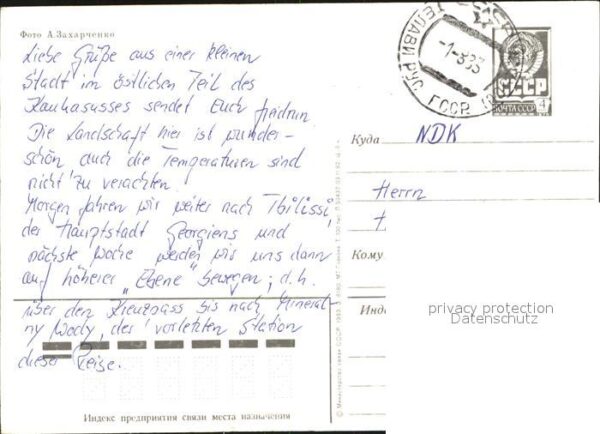 Фото А. Захарченко
Liebe Grüße aus einer kleinen
Stadt im östlichen Teil des
Kaukasusses sendet Euch
Die Landschaft hier ist wunder-
schön auch die Temperaturen sind
nicht zu verachten.
Morgen fahren wir weiter nach Tbilissi,
der Hauptstadt Georgiens und
nächste Woche werden wir uns dann
auf höherer „Ebene" bewegen; d.h.
über den Kreuzpass bis nach Mineral-
ny Wody, der vorletzten Station
dieser Reise.
Индекс предприятия связи места назначения
ТЕЛАВИ
ГССР
СССР
ПОЧТА СССР
4
Куда
NDK
Herrn
Кому
Инде
privacy protection
Datenschutz